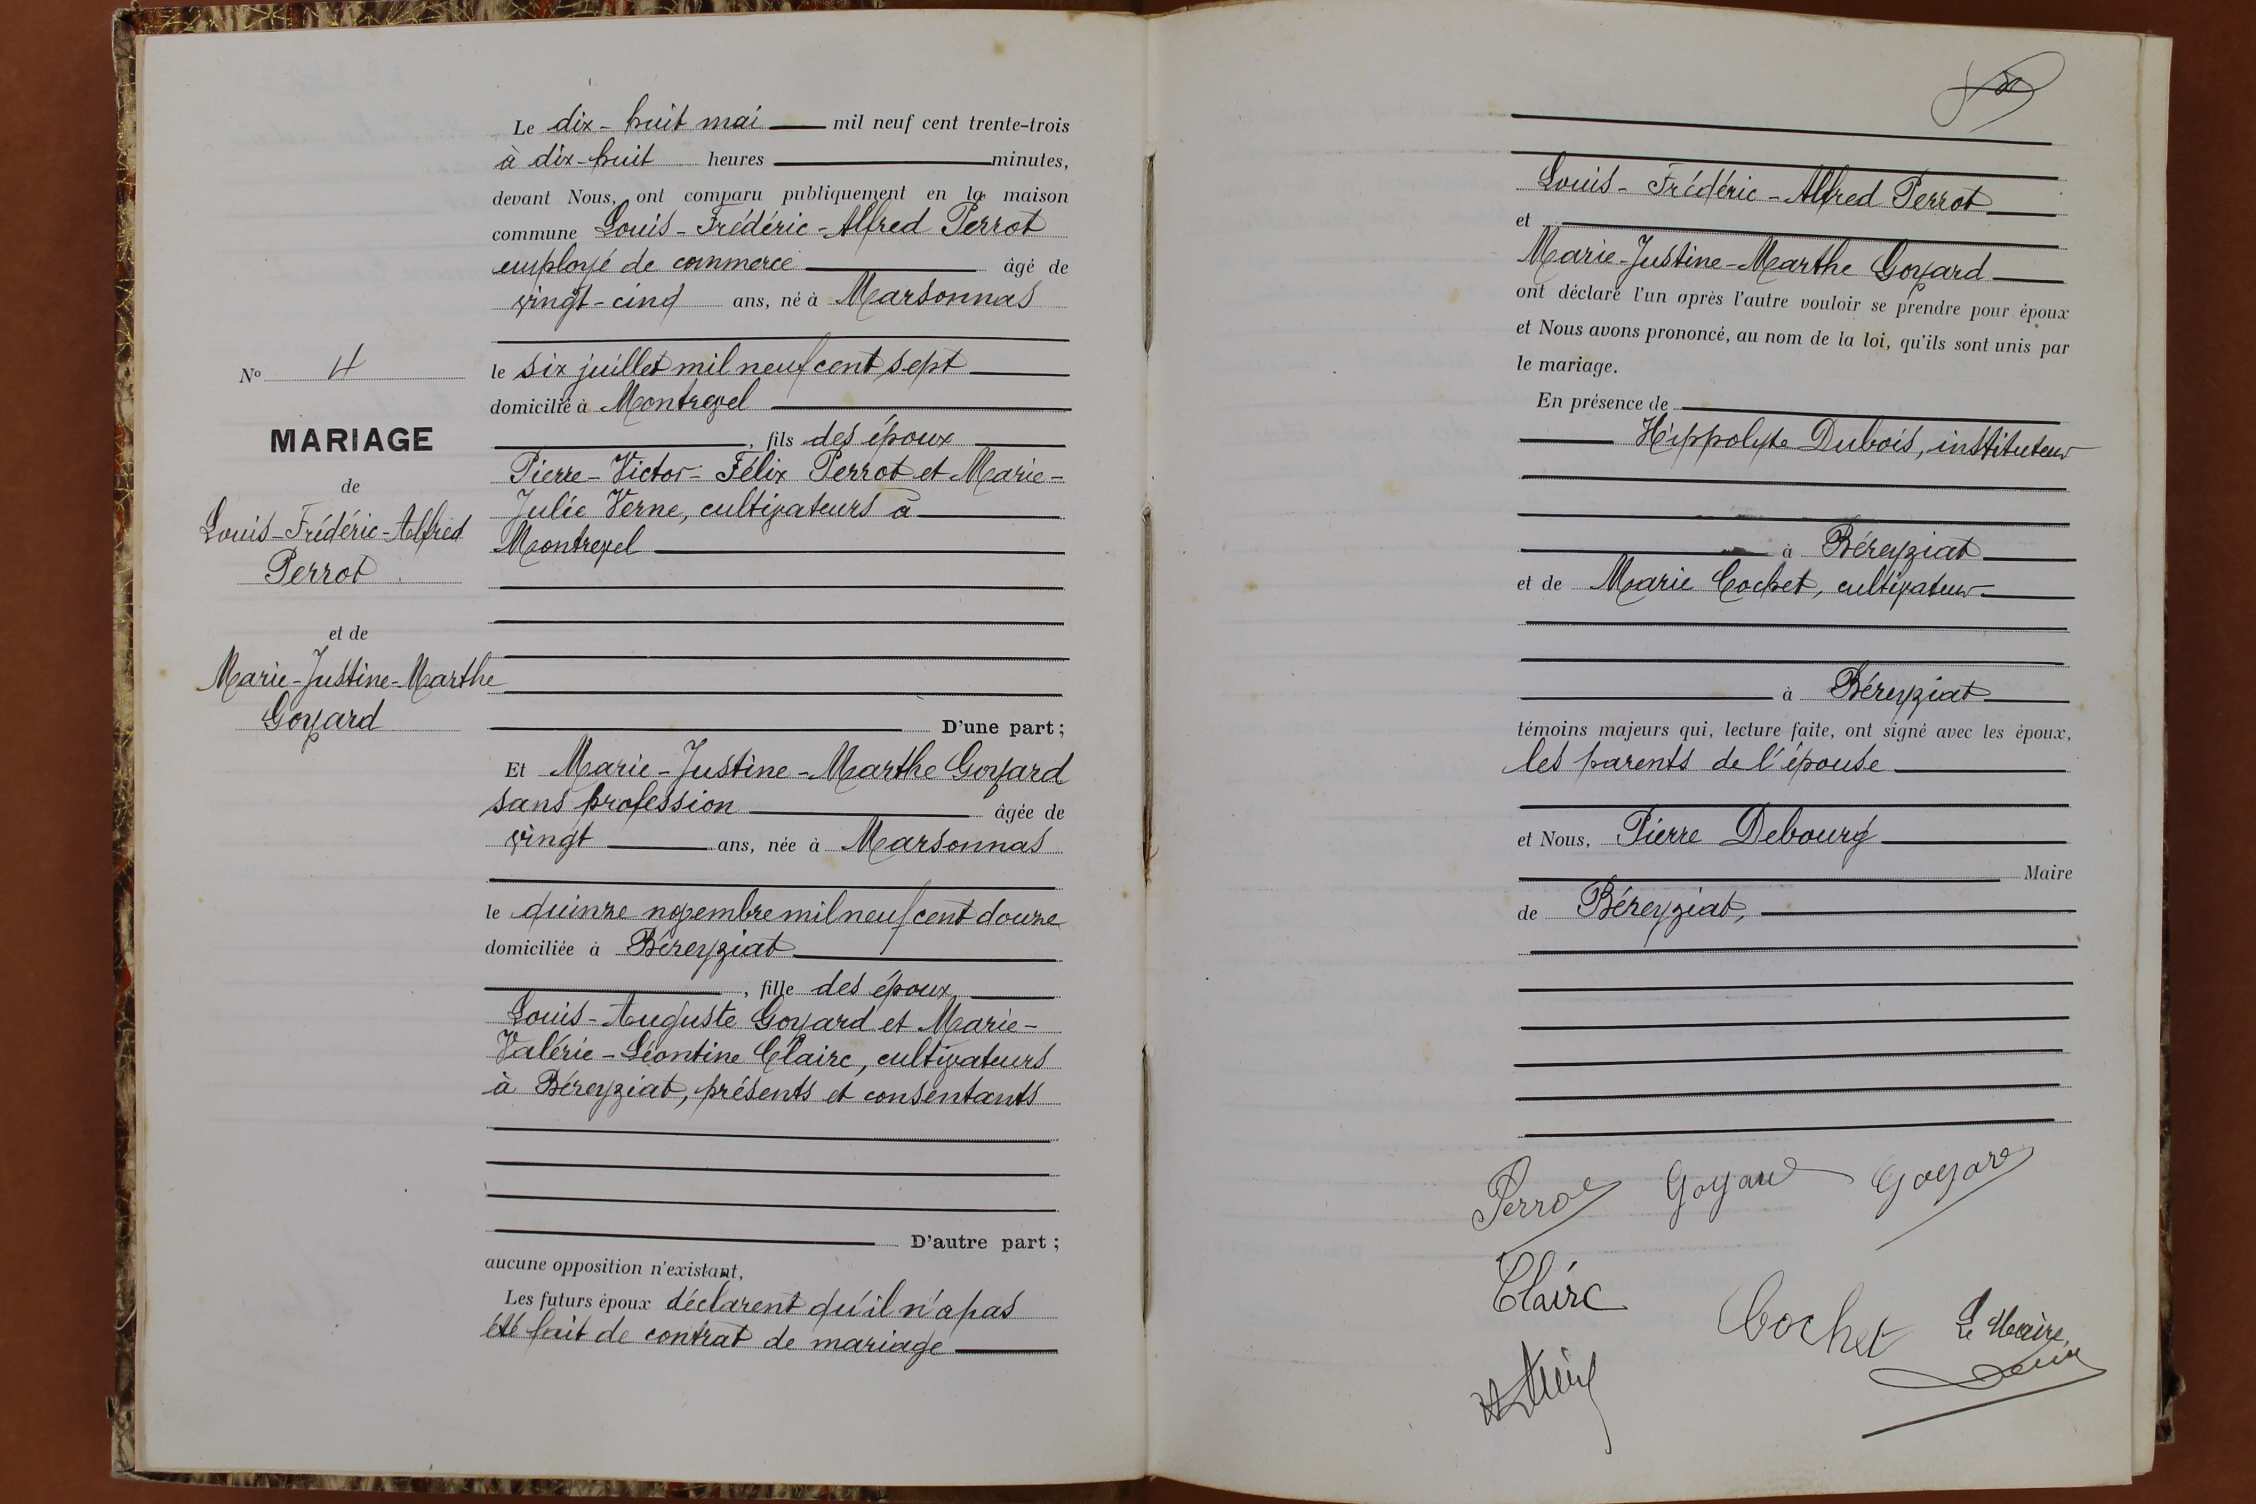 Le dix-huit mai mil neuf cent trente-trois
à dix-huit heures minutes,
devant Nous, ont comparu publiquement en la maison
commune Louis-Frédéric-Alfred Perrot
employé de commerce âgé de
vingt-cinq ans, né à Marsonnas
le six juillet mil neuf cent sept
domicilié à Montrevel
, fils des époux
Pierre-Victor-Félix Perrot et Marie-
Julie Verne, cultivateurs à
Montrevel
D'une part ;
Et Marie-Justine-Marthe Goyard
sans profession âgée de
vingt ans, née à Marsonnas
le quinze novembre mil neuf cent douze
domiciliée à Béreyziat
, fille des époux
Louis-Auguste Goyard et Marie-
Valérie-Léontine Claire, cultivateurs
à Béreyziat, présents et consentants
D'autre part ;
aucune opposition n'existant,
Les futurs époux déclarent qu'il n'a pas
été fait de contrat de mariage
No 4
MARIAGE
de
Louis-Frédéric-Alfred
Perrot
et de
Marie-Justine-Marthe
Goyard
Louis-Frédéric-Alfred Perrot
et
Marie-Justine-Marthe Goyard
ont déclaré l'un après l'autre vouloir se prendre pour époux
et Nous avons prononcé, au nom de la loi, qu'ils sont unis par
le mariage.
En présence de
Hippolyte Dubois, instituteur
à Béreyziat
et de Marie Cochet, cultivateur
à Béreyziat
témoins majeurs qui, lecture faite, ont signé avec les époux,
les parents de l'épouse
et Nous, Pierre Debourg
Maire
de Béreyziat,
Perrot Goyard Goyard
Claire
Cochet Le Maire,